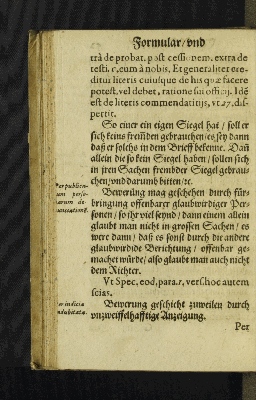 Formular/ vnd
trà de probat. p̃st cessi. nem. extra de
testi. c. cum à nobis, Et generaliter cre-
ditur literis cuiusque de his quæ facere
potest, vel debet, ratione sui officij. Idē
est de literis commendatitijs, vt 27. di-
stPertit.
So einer ein eigen Siegel hat / soll er
sich keins frembden gebrauchen / es sey dann
daß er solchs in dem Brieff bekenne. Dañ
allein die so kein Siegel haben / sollen sich
in jren Sachen frembder Siegel gebrau-
chen / vnd darumb bitten / ꝛc.
Per publica-
um perso-
narum de-
nunciationē.
Bewerung mag geschehen durch für-
bringung offenbarer glaubwirdiger Per-
sonen / so jhr viel seynd / dann einem allein
glaubt man nicht in grossen Sachen / es
were dann / daß es sonst durch die andere
glaubwirdide Berichtung / offenbar ge-
machet würde / also glaubt man auch nicht
dem Richter.
Vt Spec. eod. para. 1. vers. hoc autem
scias.
Per indicia
indubitata.
Bewerung geschicht zuweilen durch
vnzweiffelhafftige Anzeigung.
Per